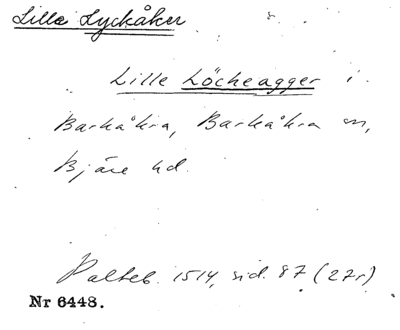 Lilla Lyckåker
Lille Löcheagger i
Barkåkra, Barkåkra sn,
Bjäre hd.
Palteb. 1514, sid. 87 (27r)
Nr 6448.